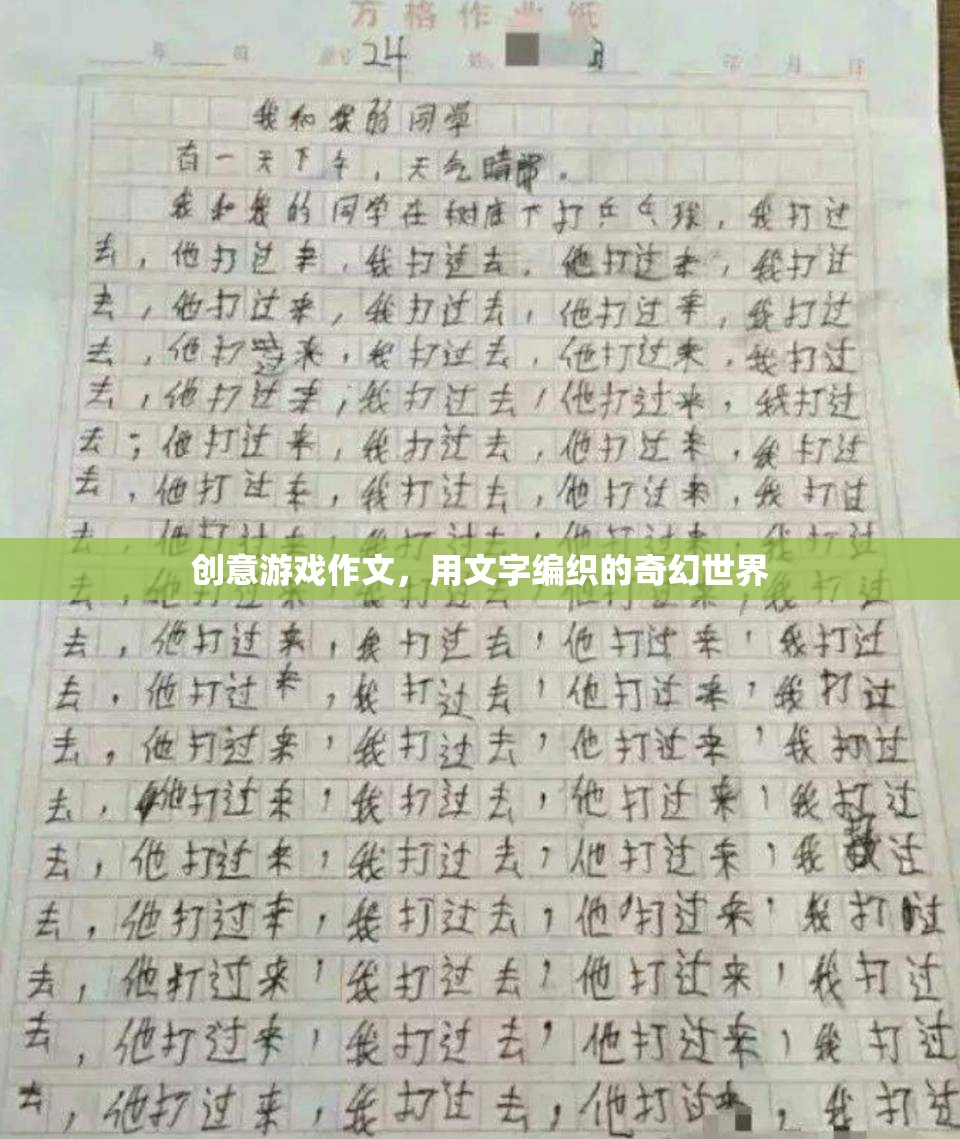 方格作业纸
年 月 24 3 年 月 日
我和我的同学
有一天下午，天气晴朗。
我和我的同学在树底下打乒乓球，我打过
去，他打过来，我打过去，他打过来，我打过
去，他打过来，我打过去，他打过来，我打过
去，他打过来，我打过去，他打过来，我打过
去，他打过来，我打过去，他打过来，我打过
去，他打过来，我打过去，他打过来，我打过
去，他打过来，我打过去，他打过来，我打过
去，他打过来，我打过去，他打过来，我打过
创意游戏作文，用文字编织的奇幻世界
去，他打过来，我打过去，他打过来，我打过
去，他打过来，我打过去，他打过来，我打过
去，他打过来，我打过去，他打过来，我打过
去，他打过来，我打过去，他打过来，我打过
去，他打过来，我打过去，他打过来，我打过
去，他打过来，我打过去，他打过来，我打过
去，他打过来，我打过去，他打过来，我打过
去，他打过来，我打过去，他打过来，我打过
去，他打过来，我打过去，他打过来，我打过
去，他打过来，我打过去，他打过来，我打过